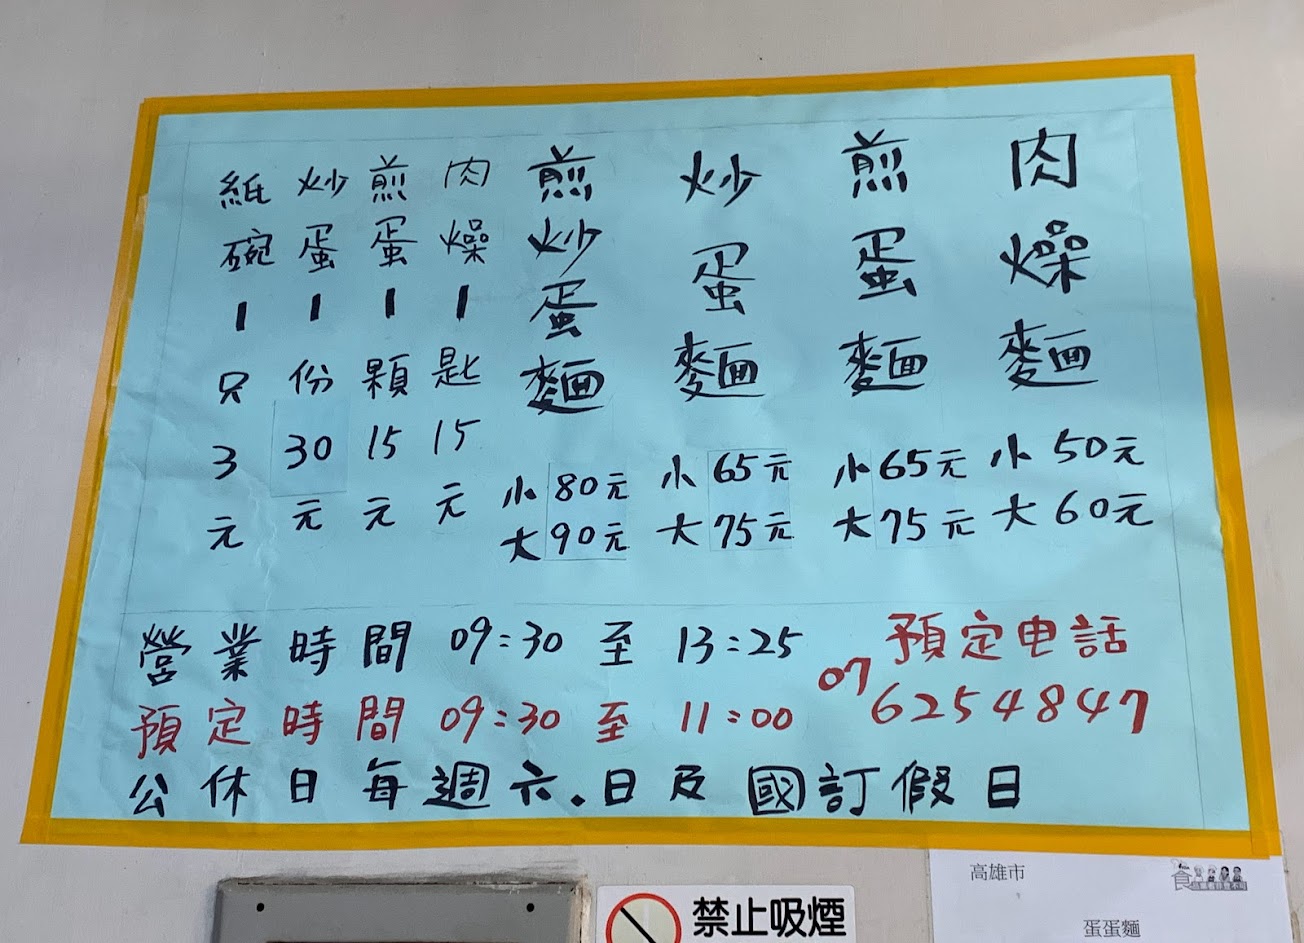 肉燥麵
小50元
大60元
煎蛋麵
小65元
大75元
炒蛋麵
小65元
大75元
煎炒蛋麵
小80元
大90元
肉燥1匙15元
煎蛋1顆15元
炒蛋1份30元
紙碗1只3元
營業時間 09:30 至 13:25
預定時間 09:30 至 11:00
預定电話
07 6254847
公休日每週六.日及國訂假日
禁止吸煙
高雄市
食
蛋蛋麵